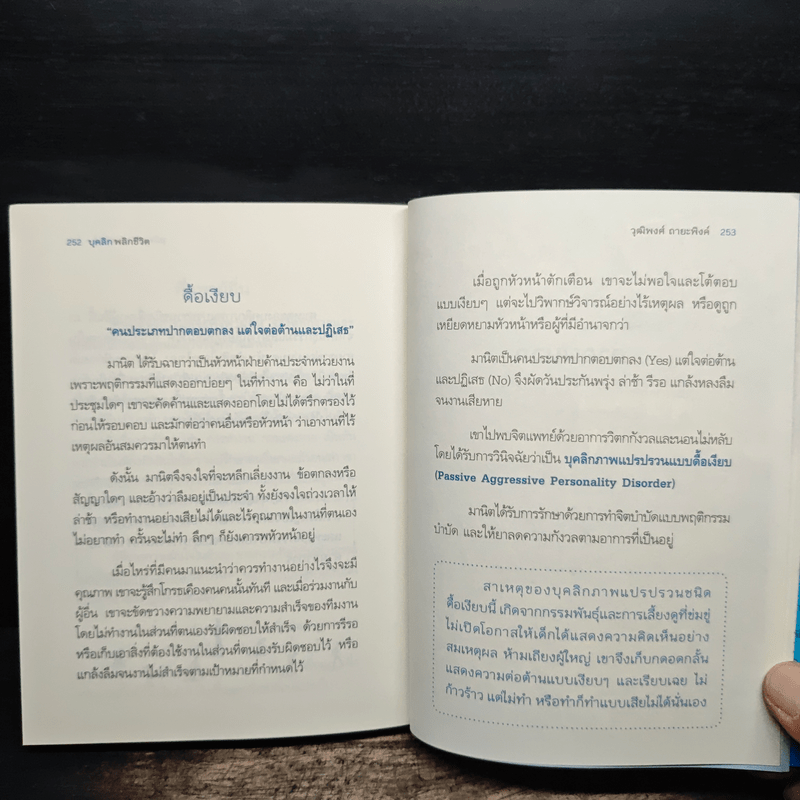 252 บุคลิกพลิกชีวิต
ดื้อเงียบ
“คนประเภทปากตอบตกลง แต่ใจต่อต้านและปฏิเสธ”
มานิต ได้รับฉายาว่าเป็นหัวหน้าฝ่ายค้านประจำหน่วยงาน
เพราะพฤติกรรมที่แสดงออกบ่อยๆ ในที่ทำงาน คือ ไม่ว่าในที่
ประชุมใดๆ เขาจะคัดค้านและแสดงออกโดยไม่ได้ตรึกตรองไว้
ก่อนให้รอบคอบ และมักต่อว่าคนอื่นหรือหัวหน้า ว่าเอางานที่ไร้
เหตุผลอันสมควรมาให้ตนทำ
ดังนั้น มานิตจึงจงใจที่จะหลีกเลี่ยงงาน ข้อตกลงหรือ
สัญญาใดๆ และอ้างว่าลืมอยู่เป็นประจำ ทั้งยังจงใจถ่วงเวลาให้
ล่าช้า หรือทำงานอย่างเสียไม่ได้และไร้คุณภาพในงานที่ตนเอง
ไม่อยากทำ ครั้นจะไม่ทำ ลึกๆ ก็ยังเคารพหัวหน้าอยู่
เมื่อไหร่ที่มีคนมาแนะนำว่าควรทำงานอย่างไรจึงจะมี
คุณภาพ เขาจะรู้สึกโกรธเคืองคนคนนั้นทันที และเมื่อร่วมงานกับ
ผู้อื่น เขาจะขัดขวางความพยายามและความสำเร็จของทีมงาน
โดยไม่ทำงานในส่วนที่ตนเองรับผิดชอบให้สำเร็จ ด้วยการรีรอ
หรือเก็บเอาสิ่งที่ต้องใช้งานในส่วนที่ตนเองรับผิดชอบไว้ หรือ
แกล้งลืมจนงานไม่สำเร็จตามเป้าหมายที่กำหนดไว้
วุฒิพงศ์ ถายะพิงค์ 253
เมื่อถูกหัวหน้าตักเตือน เขาจะไม่พอใจและโต้ตอบ
แบบเงียบๆ แต่จะไปวิพากษ์วิจารณ์อย่างไร้เหตุผล หรือดูถูก
เหยียดหยามหัวหน้าหรือผู้ที่มีอำนาจกว่า
มานิตเป็นคนประเภทปากตอบตกลง (Yes) แต่ใจต่อต้าน
และปฏิเสธ (No) จึงผัดวันประกันพรุ่ง ล่าช้า รีรอ แกล้งหลงลืม
จนงานเสียหาย
เขาไปพบจิตแพทย์ด้วยอาการวิตกกังวลและนอนไม่หลับ
โดยได้รับการวินิจฉัยว่าเป็น บุคลิกภาพแปรปรวนแบบดื้อเงียบ
(Passive Aggressive Personality Disorder)
มานิตได้รับการรักษาด้วยการทำจิตบำบัดแบบพฤติกรรม
บำบัด และให้ยาลดความกังวลตามอาการที่เป็นอยู่
สาเหตุของบุคลิกภาพแปรปรวนชนิด
ดื้อเงียบนี้ เกิดจากกรรมพันธุ์และการเลี้ยงดูที่ข่มขู่
ไม่เปิดโอกาสให้เด็กได้แสดงความคิดเห็นอย่าง
สมเหตุผล ห้ามเถียงผู้ใหญ่ เขาจึงเก็บกดอดกลั้น
แสดงความต่อต้านแบบเงียบๆ และเรียบเฉย ไม่
ก้าวร้าว แต่ไม่ทำ หรือทำก็ทำแบบเสียไม่ได้นั่นเอง